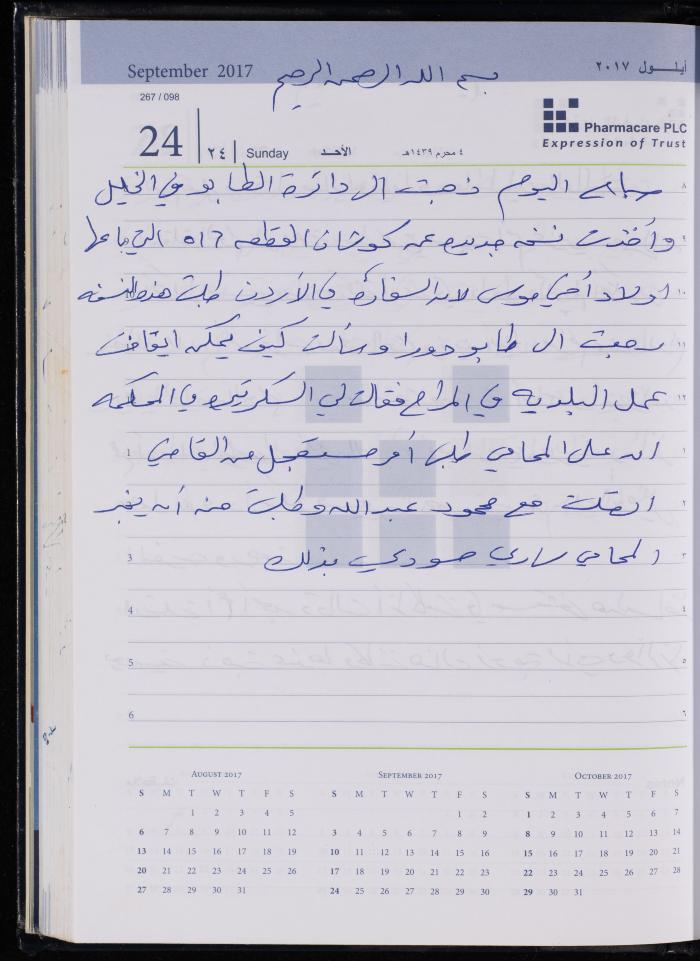 September 2017 بسم الله الرحمن الرحيم أيلول ٢٠١٧
267 / 098
24 ٢٤ Sunday الأحد ٤ محرم ١٤٣٩هـ
Pharmacare PLC
Expression of Trust
٨ صباح اليوم ذهبت الى دائرة الطابو في الخليل
٩ وأخذت نسخه جديده عن كوشان القطعه ٥١٦ التي باعها
١٠ اولاد أخي موسى لان السفارة في الأردن طلبت هذه النسخه
١١ رجعت الى طابو دورا وسألت كيف يمكن ايقاف
١٢ عمل البلديه في المراح فقالت لي السكرتيره في المحكمه
1 ان على المحامي طلب أمر مستعجل من القاضي ١
اتصلت مع محمود عبدالله وطلبت منه أن يخبر ٢
3 المحامي ساري حمودي بذلك ٣
4 ٤
5 ٥
6 ٦
AUGUST 2017
S M T W T F S
1 2 3 4 5
6 7 8 9 10 11 12
13 14 15 16 17 18 19
20 21 22 23 24 25 26
27 28 29 30 31
SEPTEMBER 2017
S M T W T F S
1 2
3 4 5 6 7 8 9
10 11 12 13 14 15 16
17 18 19 20 21 22 23
24 25 26 27 28 29 30
OCTOBER 2017
S M T W T F S
1 2 3 4 5 6 7
8 9 10 11 12 13 14
15 16 17 18 19 20 21
22 23 24 25 26 27 28
29 30 31